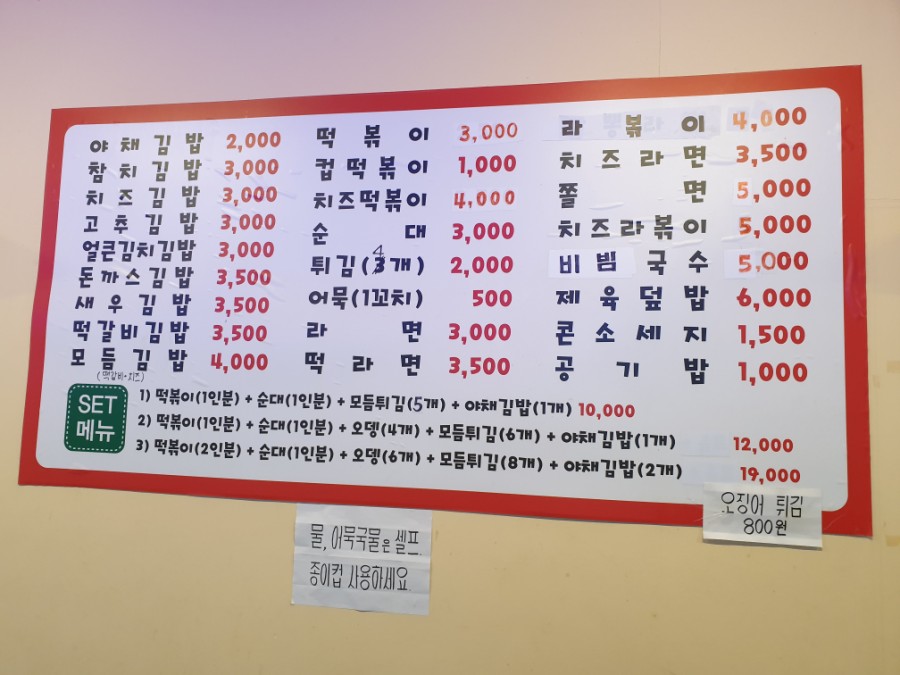 야채김밥 2,000
참치김밥 3,000
치즈김밥 3,000
고추김밥 3,000
얼큰김치김밥 3,000
돈까스김밥 3,500
새우김밥 3,500
떡갈비김밥 3,500
모듬김밥 4,000
(떡갈비+치즈)
떡볶이 3,000
컵떡볶이 1,000
치즈떡볶이 4,000
순대 3,000
튀김(4개) 2,000
어묵(1꼬치) 500
라면 3,000
떡라면 3,500
라볶이 4,000
치즈라면 3,500
쫄면 5,000
치즈라볶이 5,000
비빔국수 5,000
제육덮밥 6,000
콘소세지 1,500
공기밥 1,000
SET
메뉴
1) 떡볶이(1인분) + 순대(1인분) + 모듬튀김(5개) + 야채김밥(1개) 10,000
2) 떡볶이(1인분) + 순대(1인분) + 오뎅(4개) + 모듬튀김(6개) + 야채김밥(1개) 12,000
3) 떡볶이(2인분) + 순대(1인분) + 오뎅(6개) + 모듬튀김(8개) + 야채김밥(2개) 19,000
오징어 튀김
800원
물, 어묵국물은 셀프.
종이컵 사용하세요.